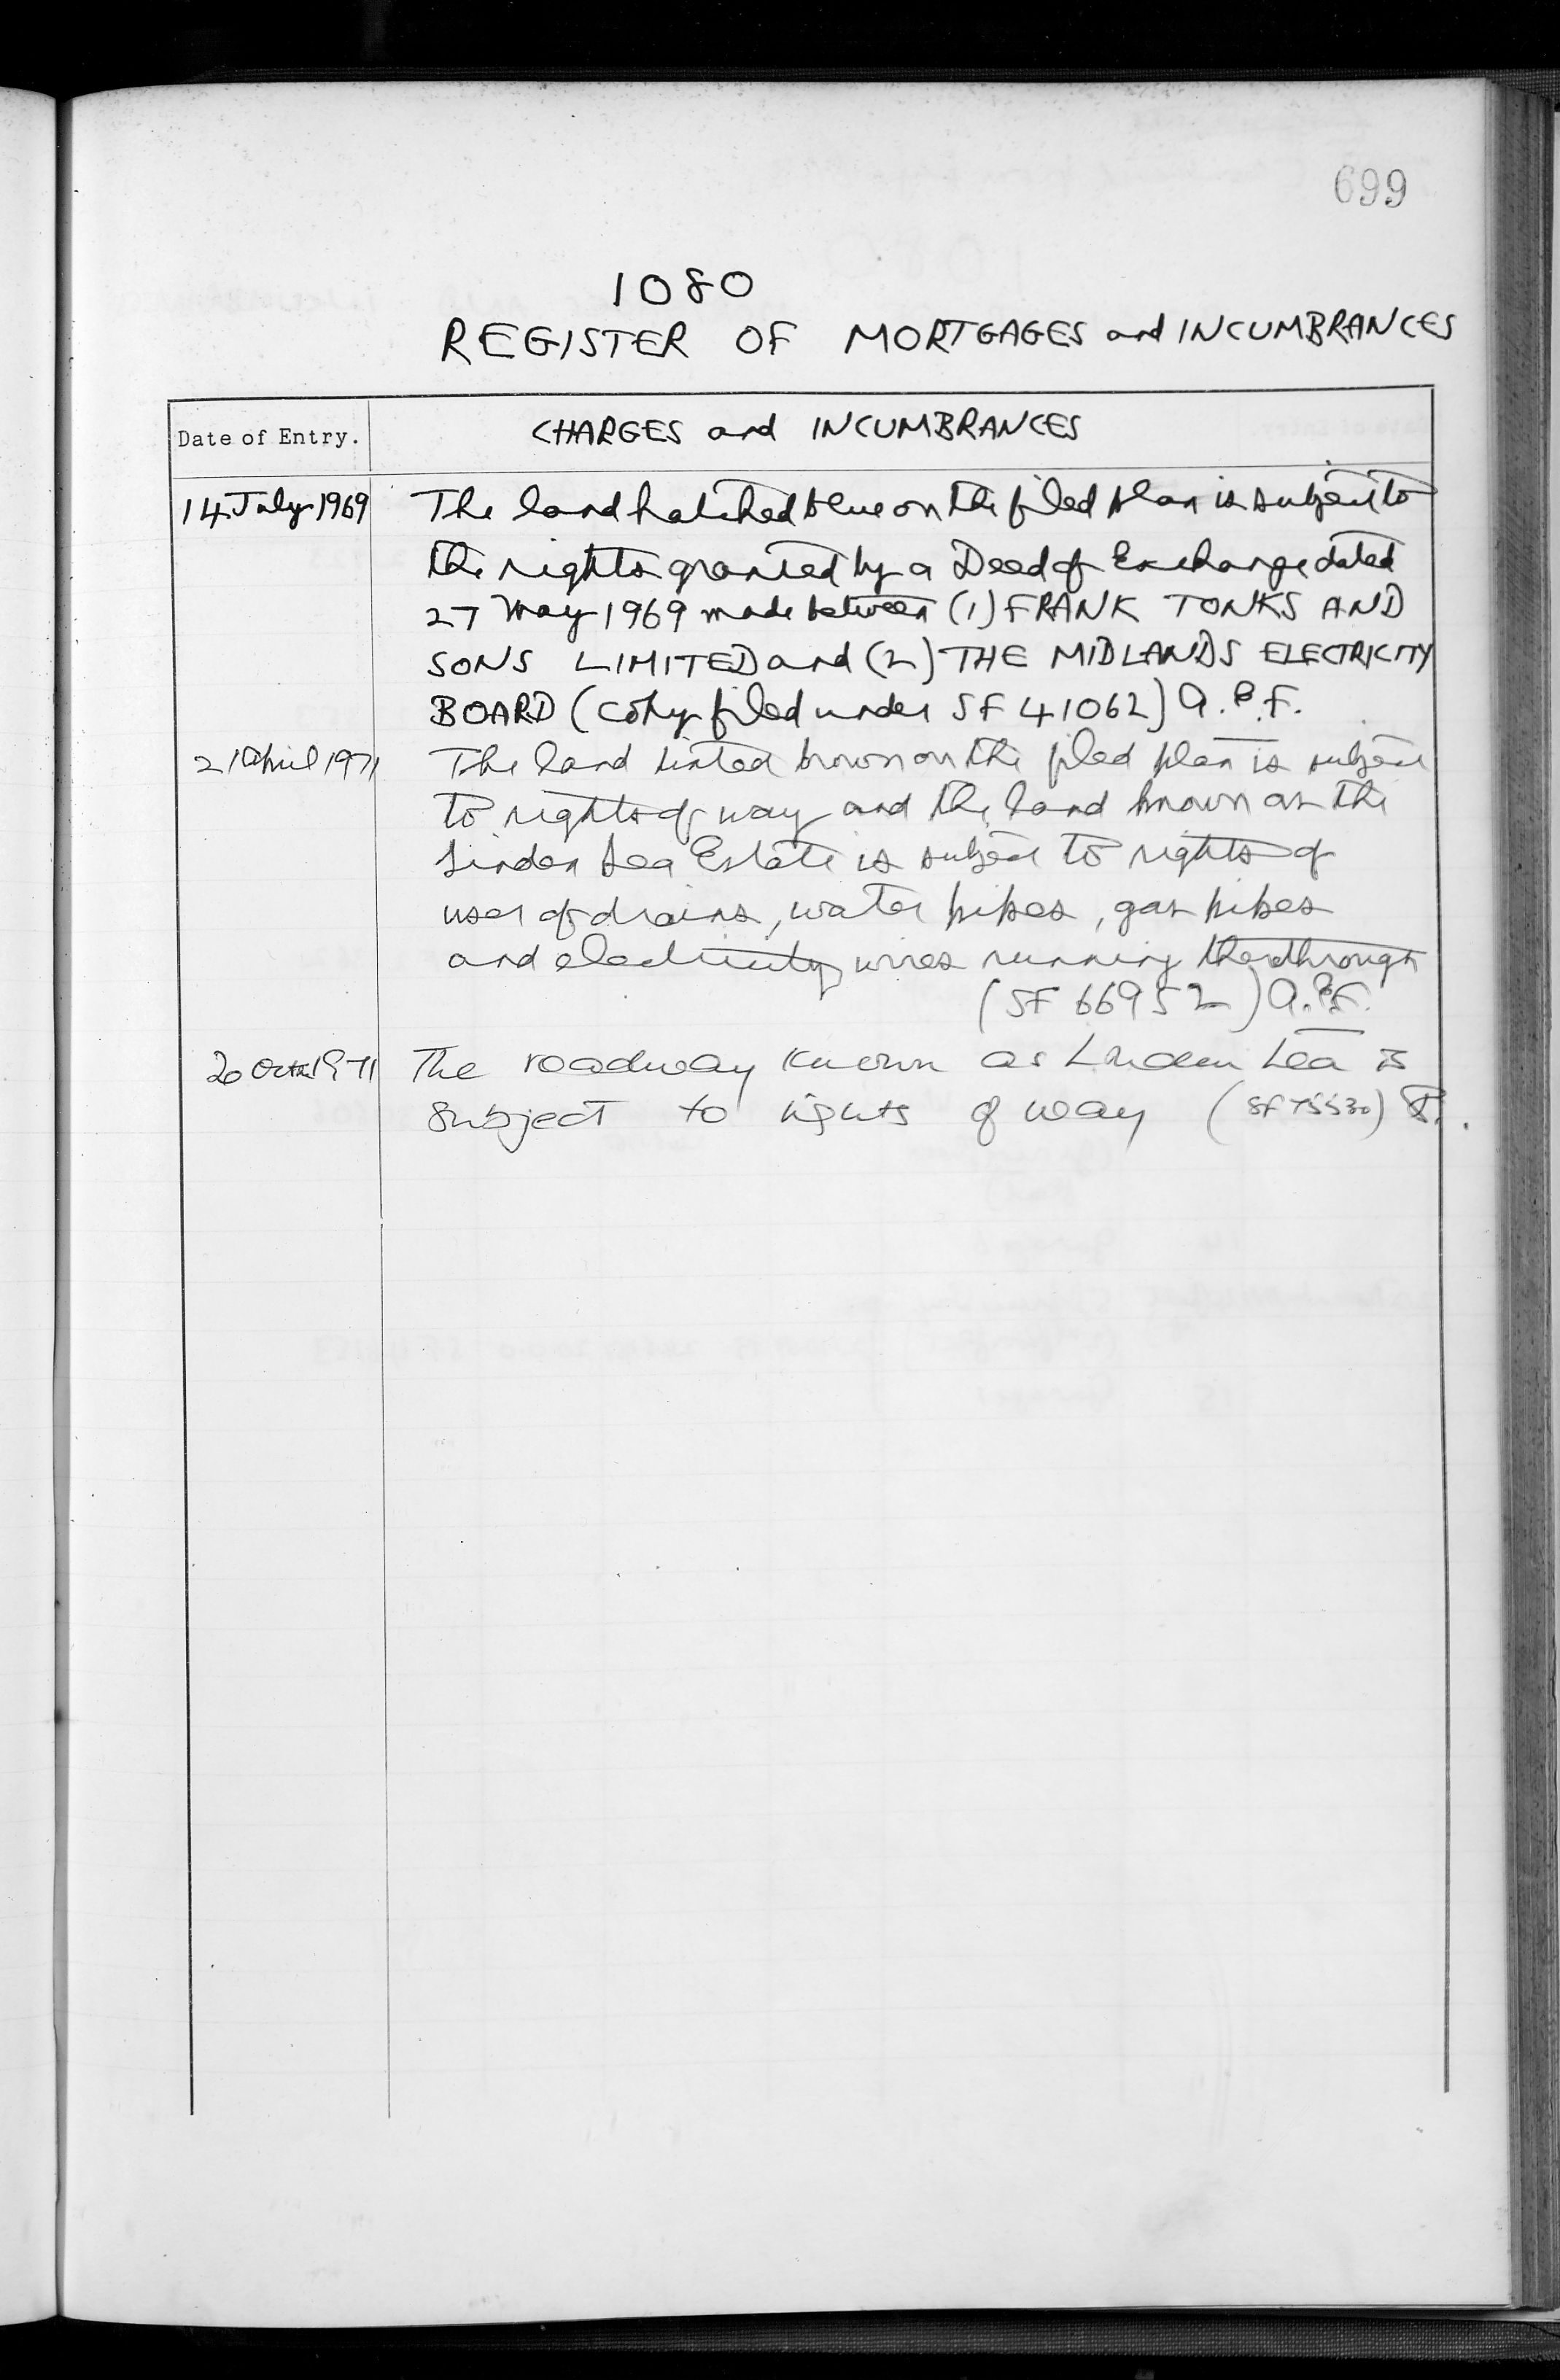 699
1080
REGISTER OF MORTGAGES and INCUMBRANCES
Date of Entry. CHARGES and INCUMBRANCES
14 July 1969 The land hatched blue on the filed plan is subject to
the rights granted by a Deed of Exchange dated
27 May 1969 made between (1) FRANK TONKS AND
SONS LIMITED and (2) THE MIDLANDS ELECTRICITY
BOARD (Copy filed under SF 41062) A.P.F.
21 April 1971 The land tinted brown on the filed plan is subject
to rights of way and the land known as the
Linden Lea Estate is subject to rights of
user of drains, water pipes, gas pipes
and electricity wires running therethrough
(SF 66952) A.P.F.
20 Oct 1971 The roadway known as Linden Lea is
subject to rights of way (SF 75530)